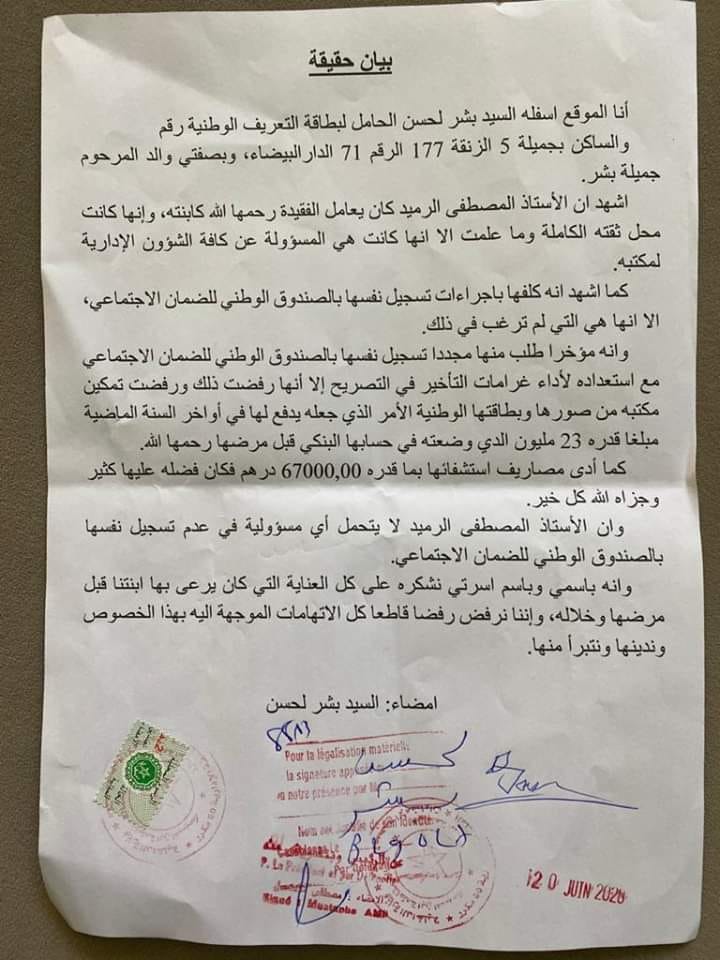 بيان حقيقة
أنا الموقع اسفله السيد بشر لحسن الحامل لبطاقة التعريف الوطنية رقم
والساكن بجميلة 5 الزنقة 177 الرقم 71 الدارالبيضاء، وبصفتي والد المرحوم
جميلة بشر.
اشهد ان الأستاذ المصطفى الرميد كان يعامل الفقيدة رحمها الله كابنته، وإنها كانت
محل ثقته الكاملة وما علمت الا انها كانت هي المسؤولة عن كافة الشؤون الإدارية
لمكتبه.
كما اشهد انه كلفها باجراءات تسجيل نفسها بالصندوق الوطني للضمان الاجتماعي،
الا انها هي التي لم ترغب في ذلك.
وانه مؤخرا طلب منها مجددا تسجيل نفسها بالصندوق الوطني للضمان الاجتماعي
مع استعداده لأداء غرامات التأخير في التصريح إلا أنها رفضت ذلك ورفضت تمكين
مكتبه من صورها وبطاقتها الوطنية الأمر الذي جعله يدفع لها في أواخر السنة الماضية
مبلغا قدره 23 مليون الدي وضعته في حسابها البنكي قبل مرضها رحمها الله.
كما أدى مصاريف استشفائها بما قدره 67000,00 درهم فكان فضله عليها كثير
وجزاه الله كل خير.
وان الأستاذ المصطفى الرميد لا يتحمل أي مسؤولية في عدم تسجيل نفسها
بالصندوق الوطني للضمان الاجتماعي.
وانه باسمي وباسم اسرتي نشكره على كل العناية التي كان يرعى بها ابنتنا قبل
مرضها وخلاله، وإننا نرفض رفضا قاطعا كل الاتهامات الموجهة اليه بهذا الخصوص
وندينها ونتبرأ منها.
امضاء: السيد بشر لحسن
Pour la légalisation matérielle
la signature
en notre présence par M
12 0 JUIN 2020